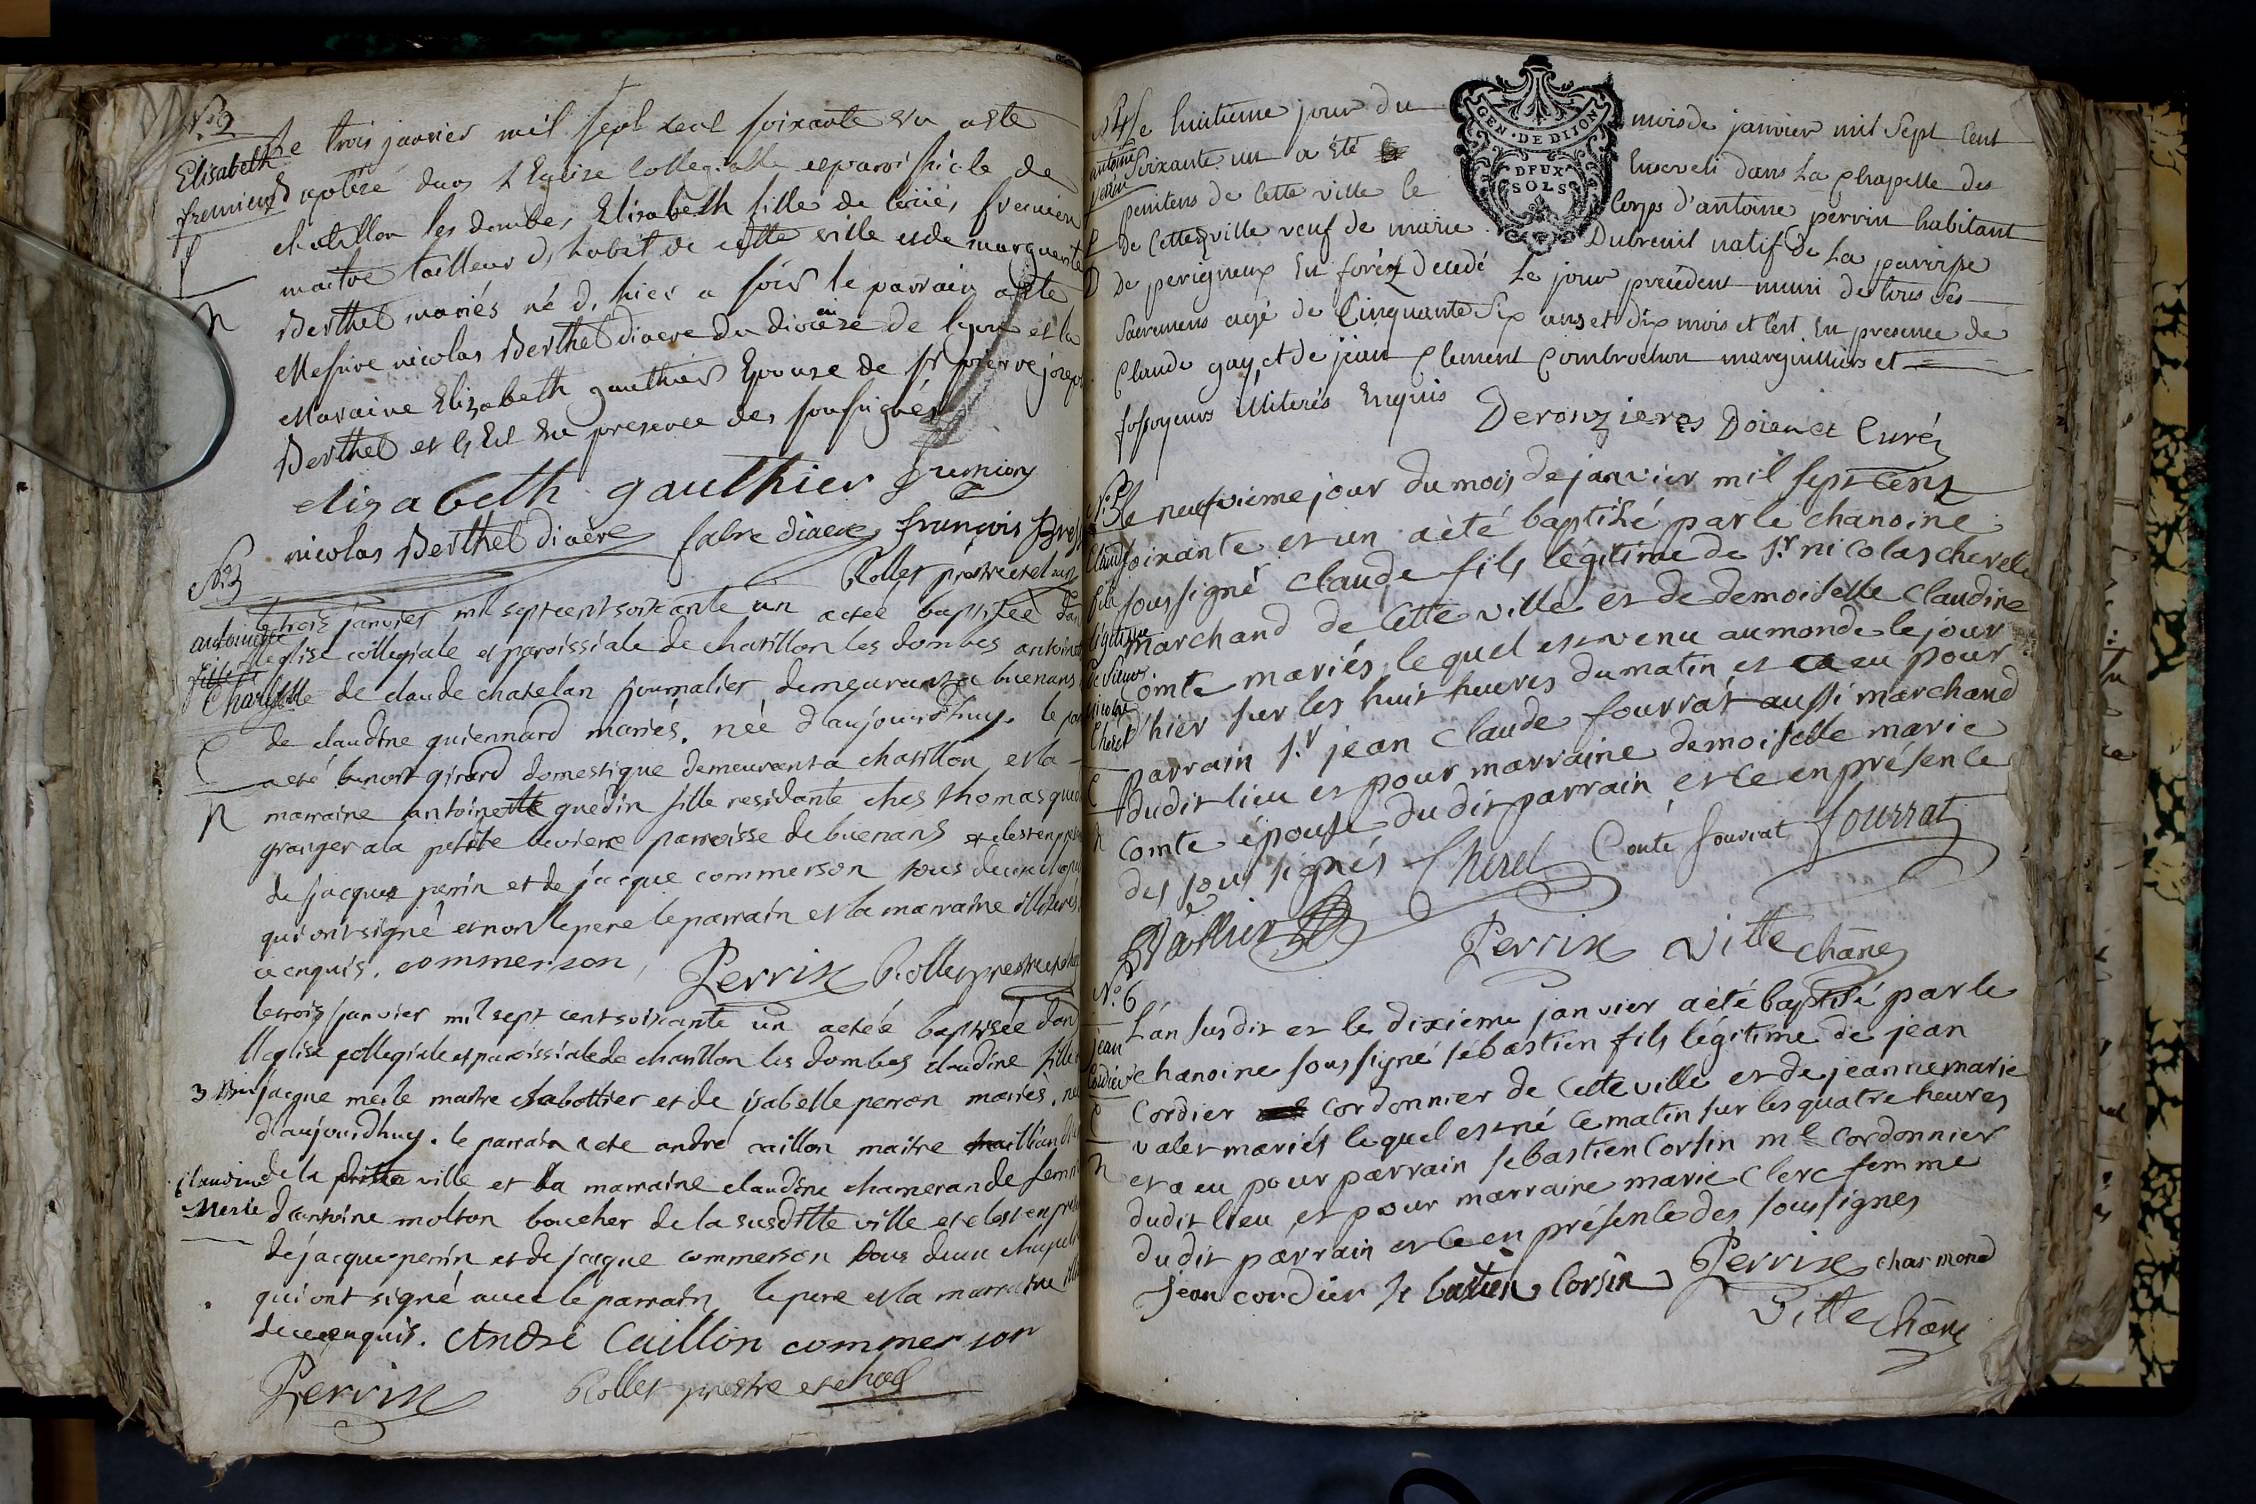 Elisabeth
fremion
Le trois janvier mil sept cent soixante un a ete
baptisé dans L'Eglise Collegialle et paroissialle de
chatillon les dombes Elisabeth fille de fremion
maitre tailleur d'habit de cette ville et de marguerite
Berthet mariés né d'hier a soir le parrain a ete
Messire nicolas Berthet diacre du diocèze de lyon et la
Maraine Elizabeth gauthier Epouze de Sr pierre joseph
Berthet et c'est en presence des soussignés
elizabeth gauthier fremion
nicolas Berthet diacre fabre diacre françois
Rollet prestre et
antoinette
fille
le trois janvier mil sept cent soixante un a eteé baptisée dan
leglise collegiale et paroissiale de chatillon les dombes antoinet
fille de claude chatelan journalier demeurant a buenans
de claudine guiennard mariés. née d'aujourdhuy. le par
a eté benoit girard domestique demeurant a chatillon et la
marraine antoinette guedin fille residante ches thomas gue
granger a la petite paroisse de buenans et c'est en pre
de jacque perrin et de jacque commerson tous deux
qui ont signé et non le pere le parrain et la marraine illiterés
de ce enquis. commerson, Perrin Rollet prestre et cha
le trois janvier mil sept cent soixante un a eteé baptisée dan
l'eglise collegiale et paroissiale de chatillon les dombes claudine fille
3 jacque merle maitre sabottier et de isabelle perron mariés. née
d'aujourdhuy. le parrain a ete andré caillon maitre
claudine de la ville et la marraine claudine chamerande femme
Merle d'antoine molton boucher de la susditte ville et c'est en pre
de jacque perrin et de jacque commerson tous deux
qui ont signé avec le parrain le pere et la marraine
de ce enquis. André Caillon commerson
Perrin Rollet prestre et
GEN · DE DIJON
DEUX
SOLS
N 4
antoine
perrin
Le huitieme jour du mois de janvier mil Sept Cent
Soixante un a été Enseveli dans La Chapelle des
penitens de Cette ville le Corps d'antoine perrin habitant
de Cette ville veuf de marie Dubreuil natif de La paroisse
De perigneux En foréz decedé Le jour precedent muni de tous Ses
Sacremens agé de Cinquante Six ans et dix mois et c'est En presence de
Claude gay, et de jean Clement Combrochon marguilliers et
fossoyeurs illiterés Enquis Deronzieres Doien et Curé
N° 5
Claude
fils
légitime
de Sieur
nicolas
Cheret
Le neufvieme jour du mois de janvier mil sept cent
soixante et un a été baptisé par le chanoine
soussigné claude fils légitime de Sr nicolas
marchand de Cette ville et de demoiselle claudine
comte mariés, lequel est venu au monde le jour
d'hier sur les huit heures du matin et a eu pour
parrain Sr jean claude fourrat aussi marchand
dudit lieu et pour marraine demoiselle marie
comte épouse dudit parrain et ce en présence
des soussignés Cheret Conte fourrat fourrat
Perrin Vitte Chane
N° 6
jean
Cordier
L'an susdit et le dixieme janvier a été baptisé par le
chanoine soussigné sébastien fils légitime de jean
Cordier cordonnier de Cette ville et de jeanne marie
valet mariés lequel est né ce matin sur les quatre heures
et a eu pour parrain sebastien Corsin me cordonnier
dudit lieu et pour marraine marie Clerc femme
dudit parrain et ce en présence des soussignés
jean cordier se bastien Corsin Perrin charmond
Vitte